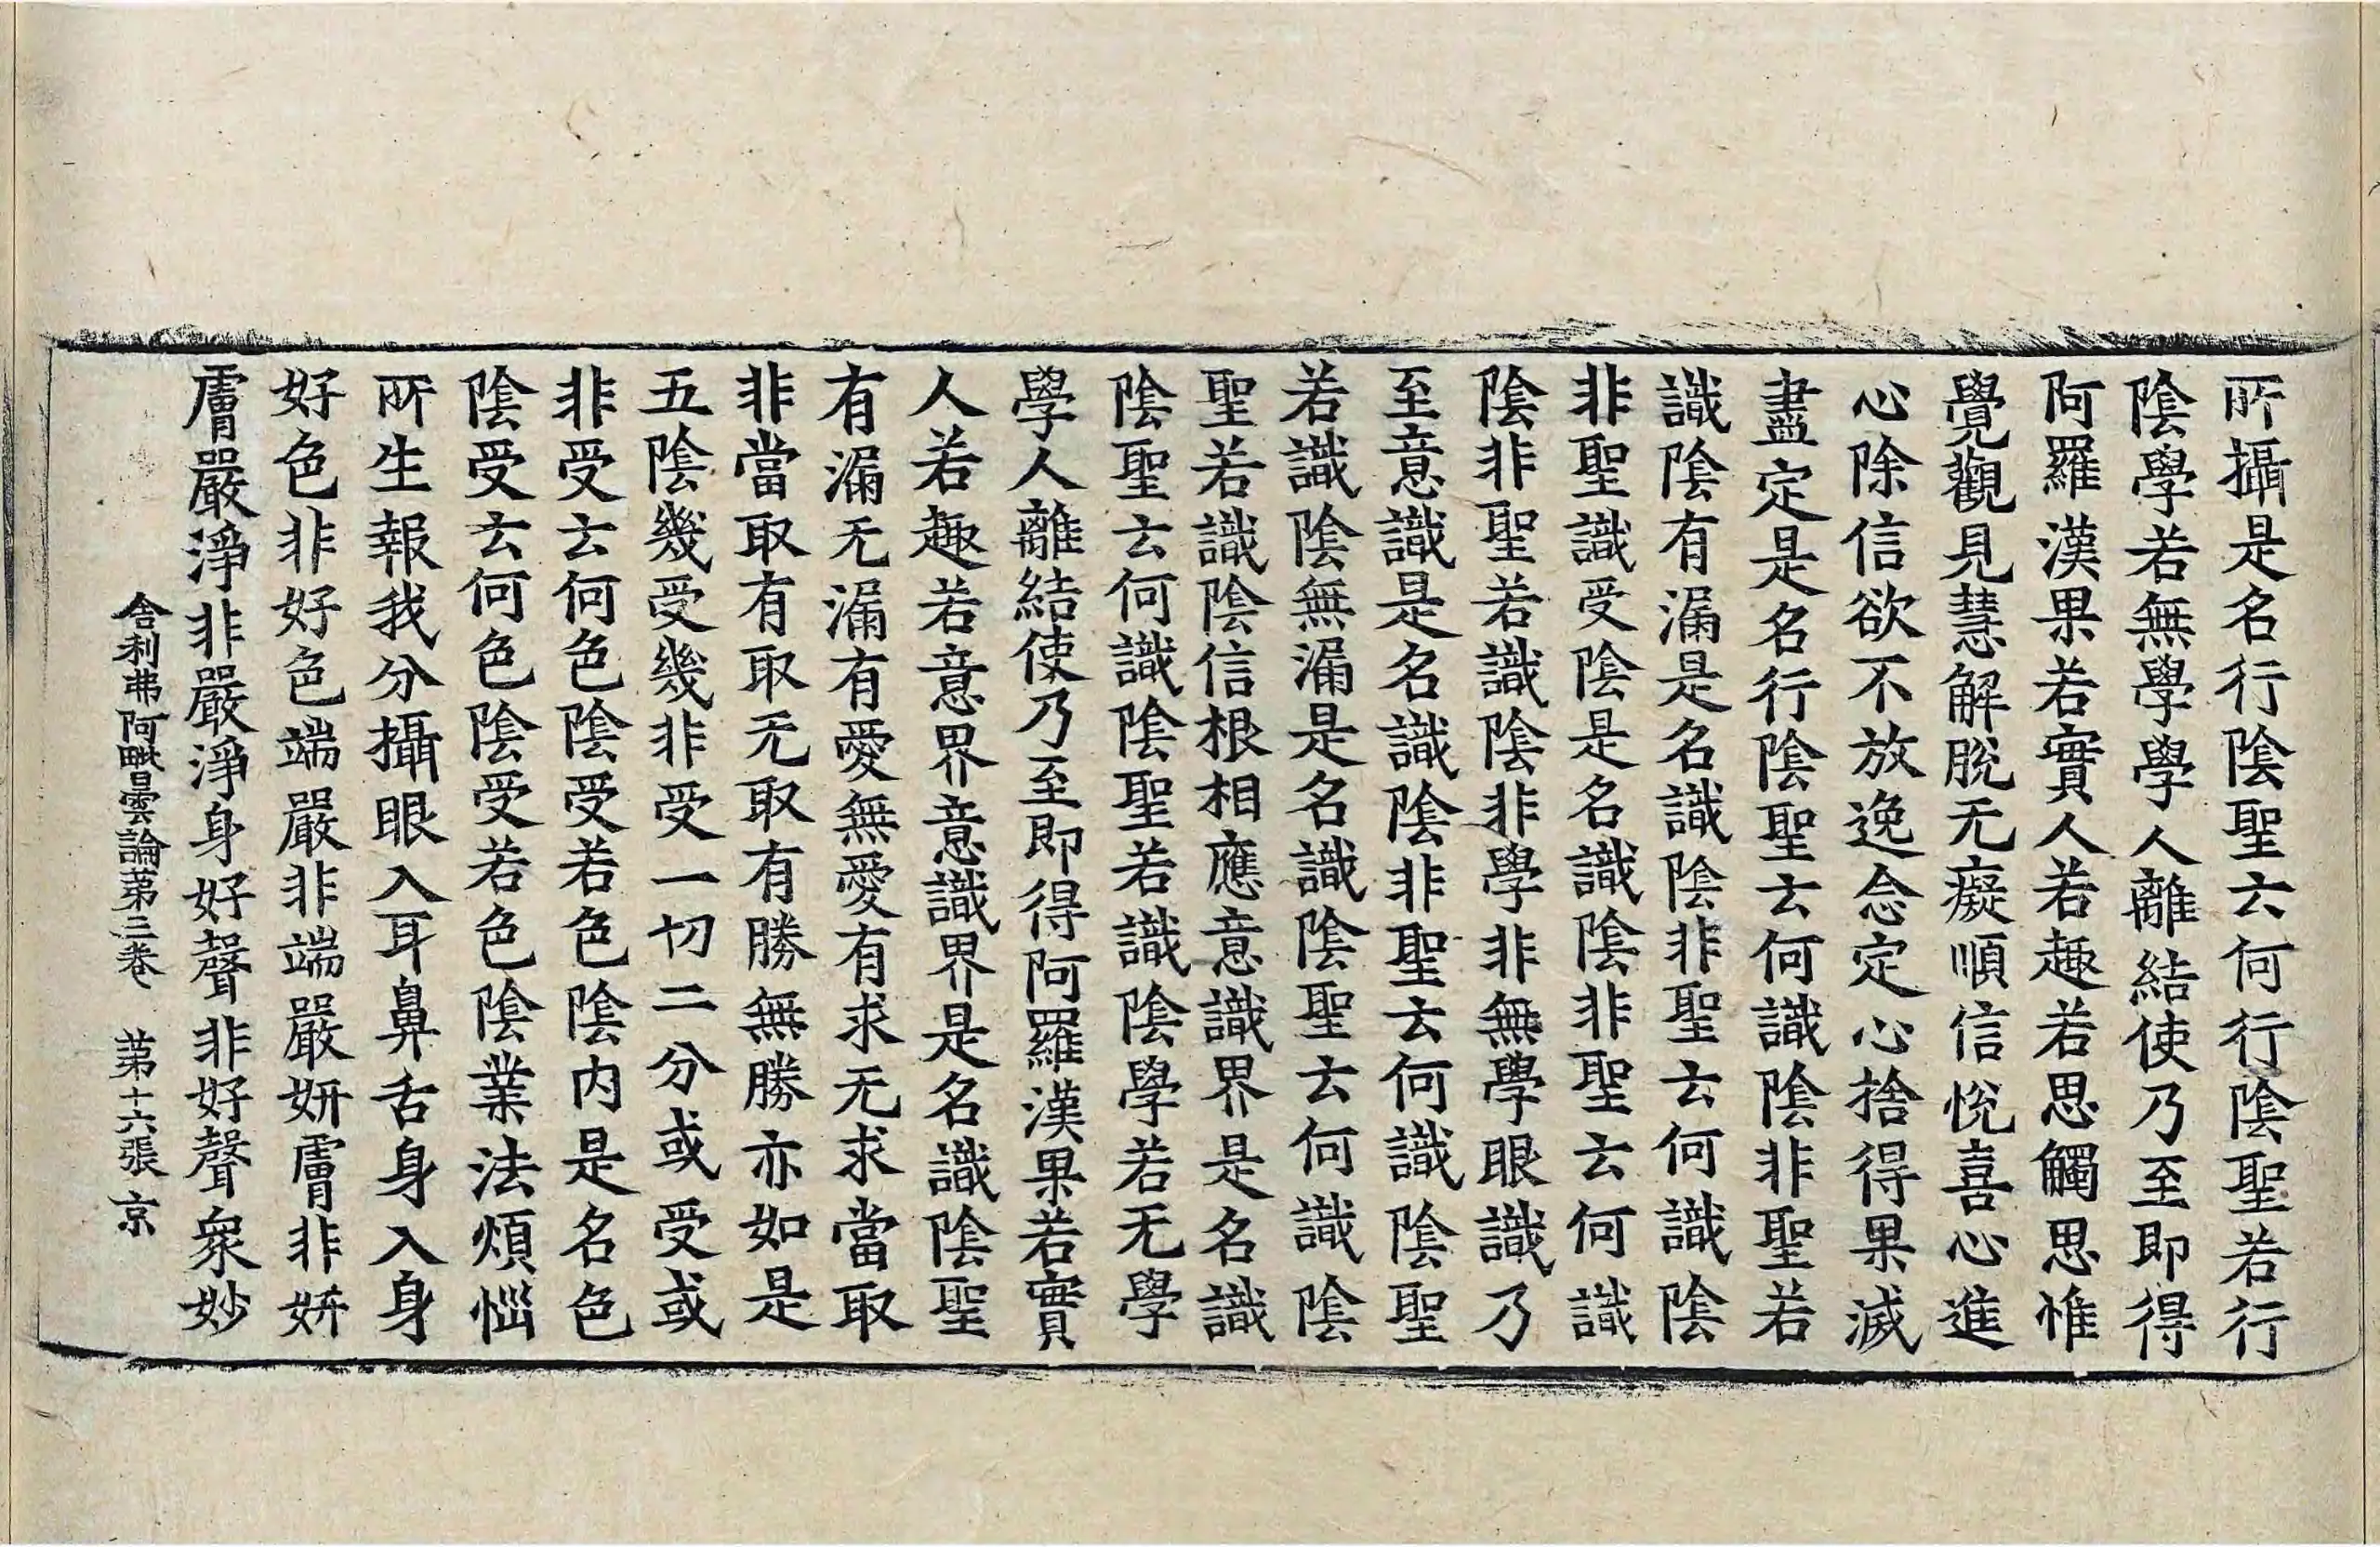 所攝是名行陰聖云何行陰聖若行
陰學若無學學人離結使乃至即得
阿羅漢果若實人若趣若思觸思惟
覺觀見慧解脫无癡順信悅喜心進
心除信欲不放逸念定心捨得果滅
盡定是名行陰聖云何識陰非聖若
識陰有漏是名識陰非聖云何識陰
非聖識受陰是名識陰非聖云何識
陰非聖若識陰非學非無學眼識乃
至意識是名識陰非聖云何識陰聖
若識陰無漏是名識陰聖云何識陰
聖若識陰信根相應意識界是名識
陰聖云何識陰聖若識陰學若无學
學人離結使乃至即得阿羅漢果若實
人若趣若意界意識界是名識陰聖
有漏无漏有愛無愛有求无求當取
非當取有取无取有勝無勝亦如是
五陰幾受幾非受一切二分或受或
非受云何色陰受若色陰內是名色
陰受云何色陰受若色陰業法煩惱
所生報我分攝眼入耳鼻舌身入身
好色非好色端嚴非端嚴妍膚非妍
膚嚴淨非嚴淨身好聲非好聲衆妙
舍利弗阿毗曇論第三卷 第十六張 京